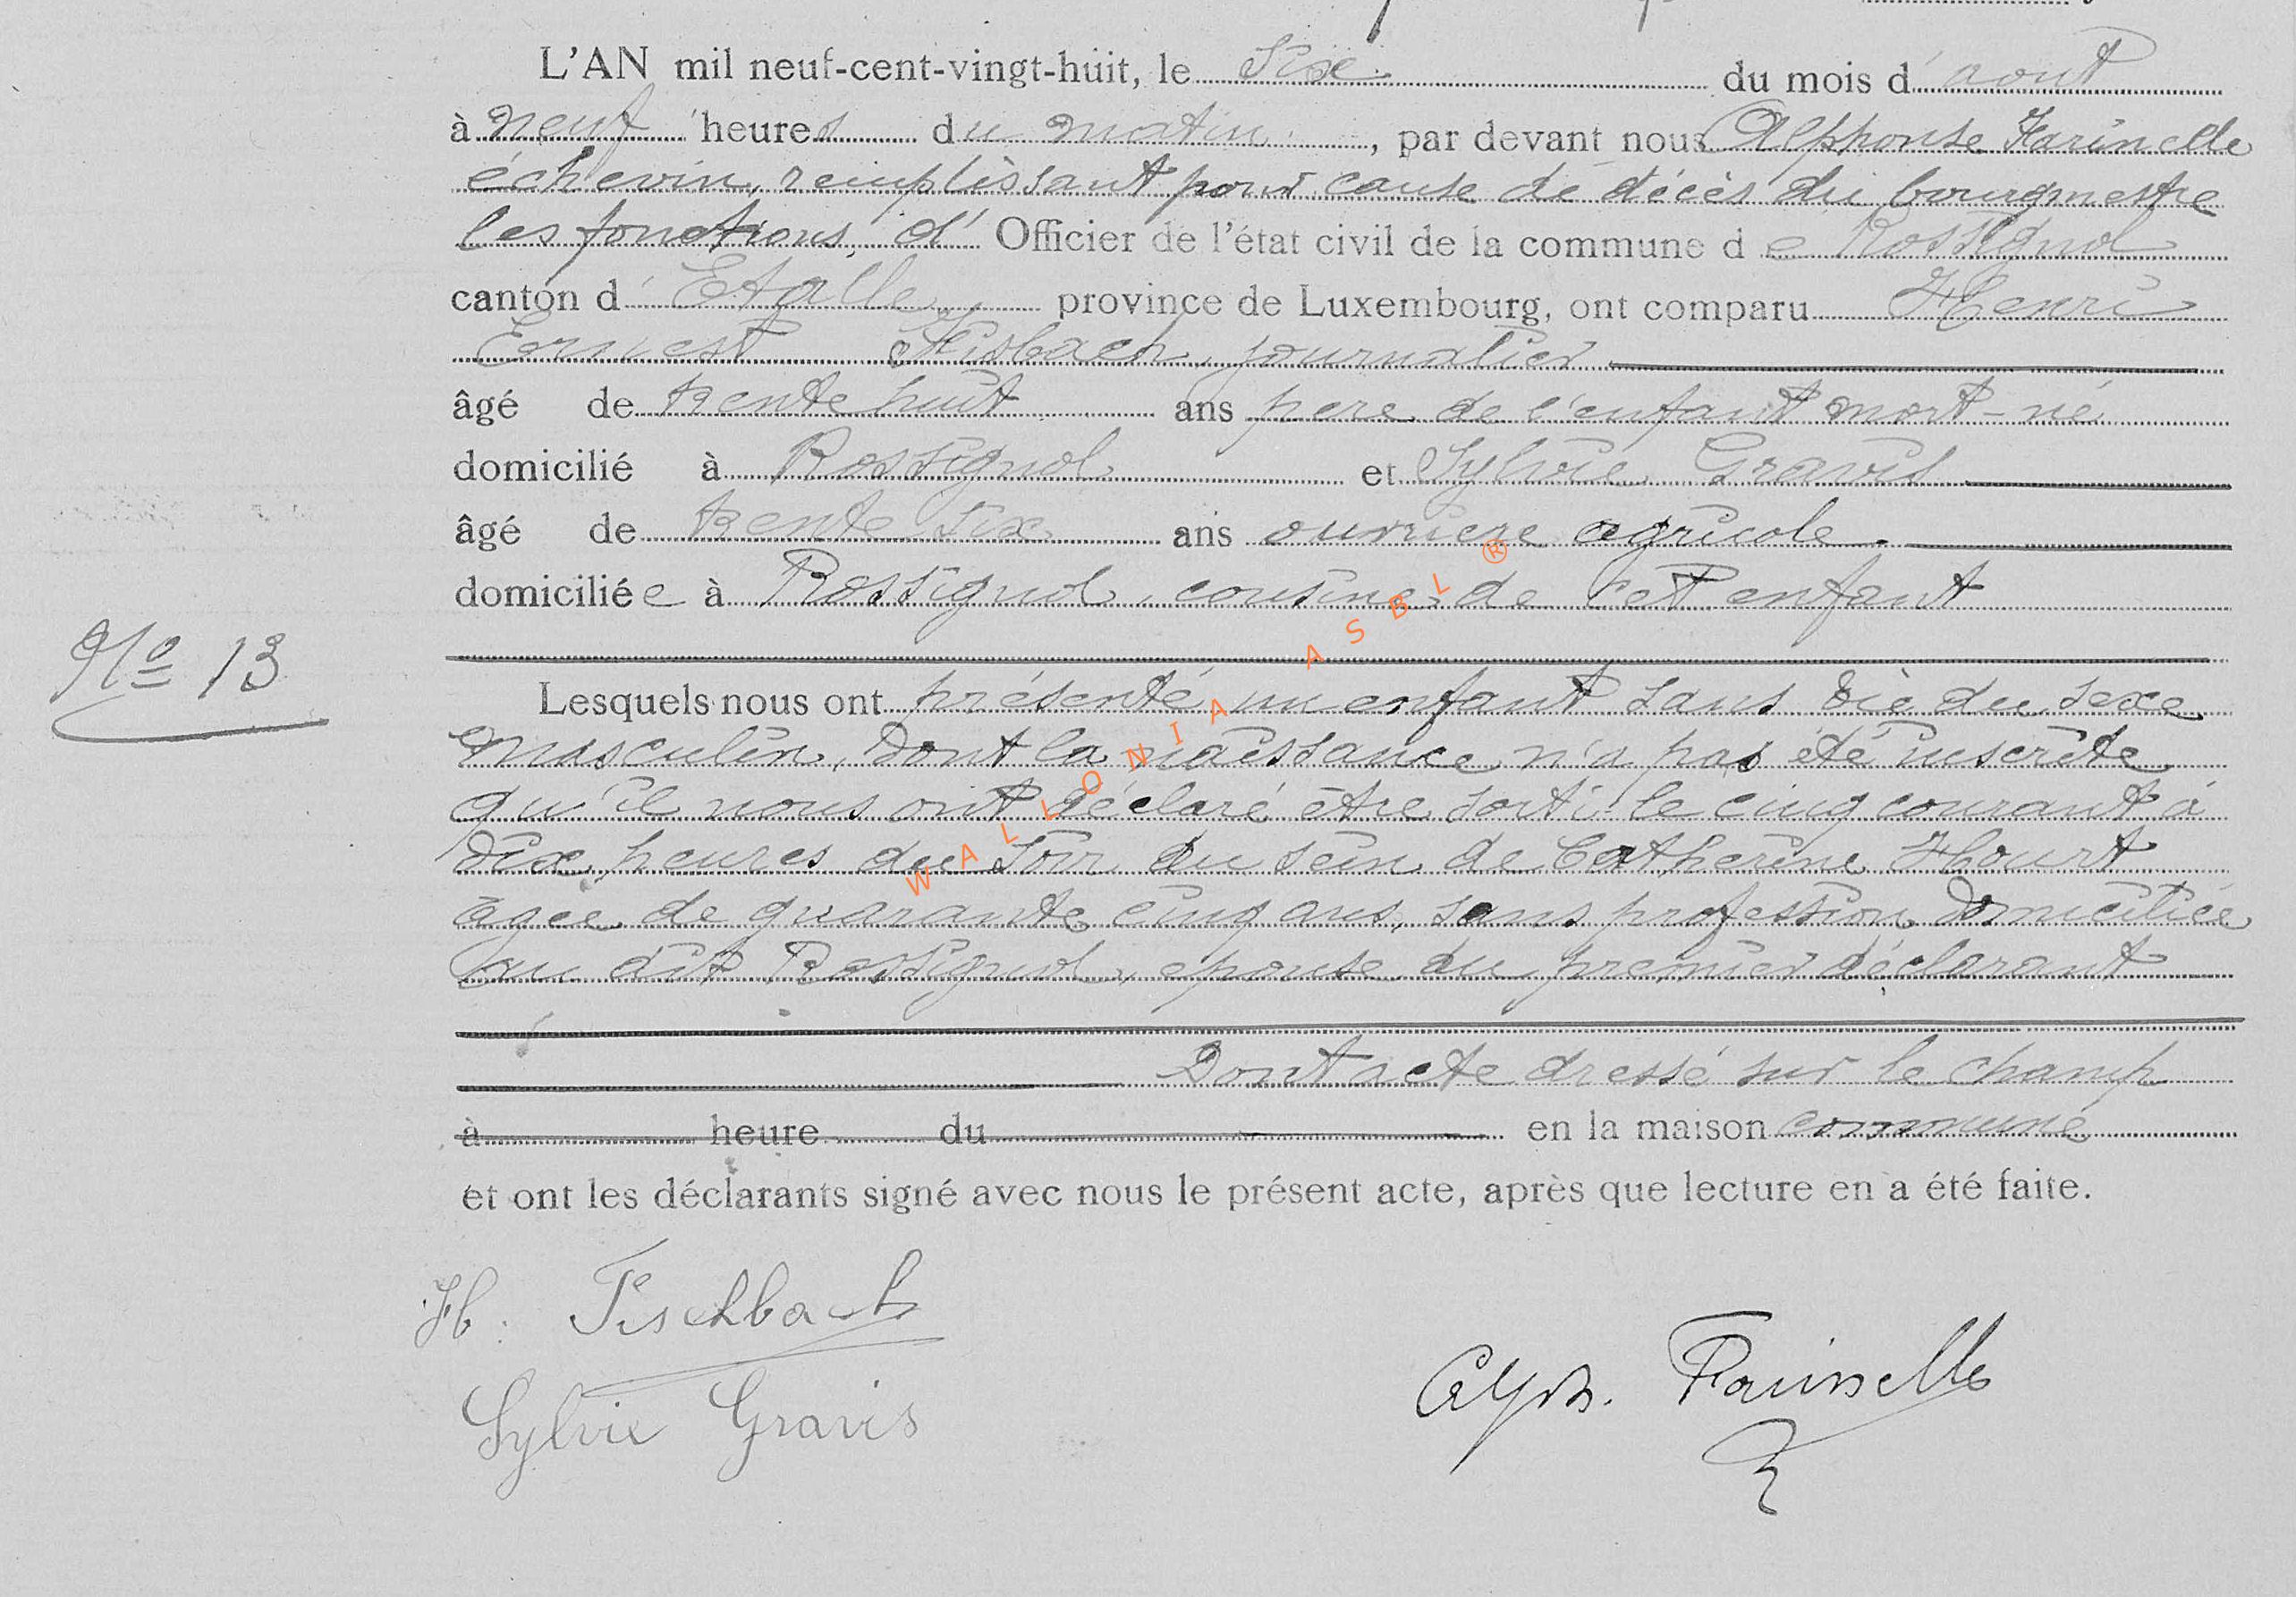 L'AN mil neuf-cent-vingt-huit, le six du mois d'aout
à neuf heures du matin, par devant nous Alphonse Farinelle
échevin, remplissant pour cause de décès du bourgmestre
les fonctions d' Officier de l'état civil de la commune de Rossignol
canton d'Etalle, province de Luxembourg, ont comparu Henri
Ernest Fisbach, journalier
âgé de trente huit ans père de l'enfant mort-né
domicilié à Rossignol et Sylvie Gravis
âgé de trente six ans ouvrière agricole.
domiciliée à Rossignol, cousine de cet enfant
No 13
Lesquels nous ont présenté un enfant sans vie du sexe
masculin, dont la naissance n'a pas été inscrite
qu'il nous ont déclaré être sorti le cinq courant à
dix heures du soir du sein de Catherine Hourt
âgée de quarante cinq ans, sans profession domiciliée
au dit Rossignol, épouse du premier déclarant
Dont acte dressé sur le champ
à heure du en la maison commune
et ont les déclarants signé avec nous le présent acte, après que lecture en a été faite.
H. Fischbach
Alph. Farinelle
Sylvie Gravis
WALLONIA ASBL ®